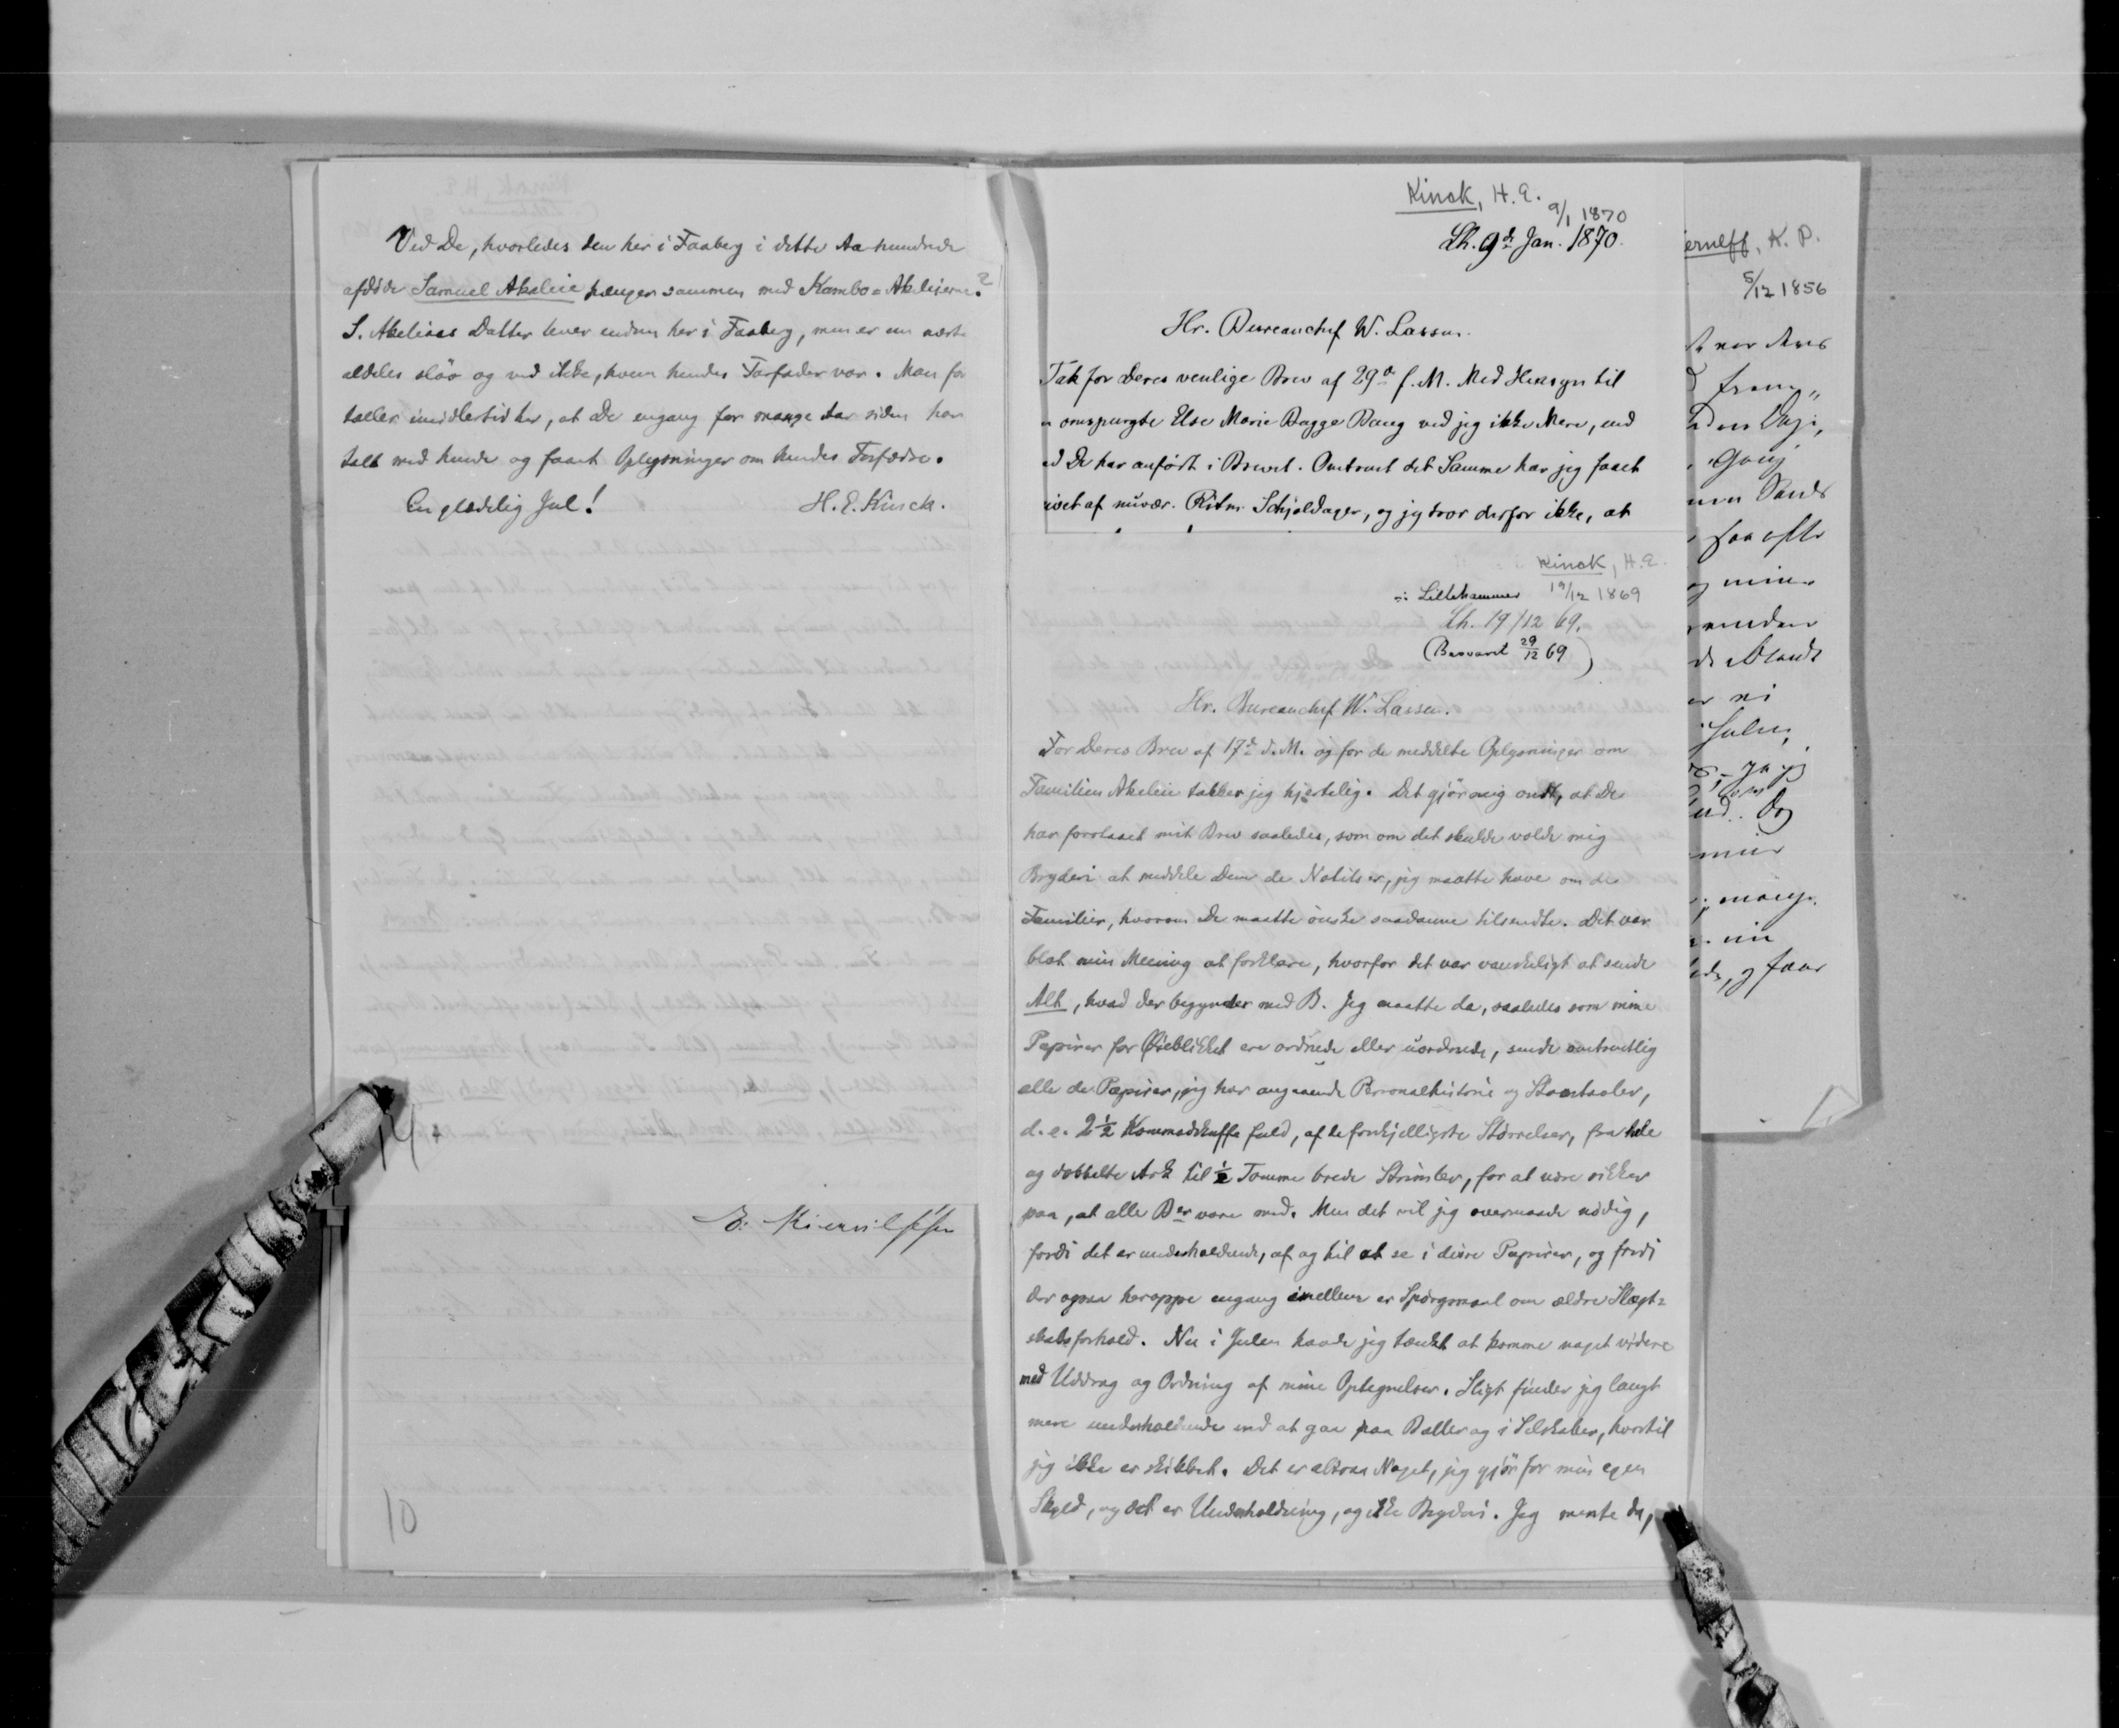 Ved De, hvorledes den her i Faaberg i dette Aarhundrede
afdøde Samuel Akeleie hænger sammen med Kambo=Akeleierne?
S. Akeleies Datter lever endnu her i Faaberg, men er nu næsten
aldeles sløv og ved ikke, hvem hendes Farfader var. Man for
tæller imidlertid her, at De engang for mange Aar siden har
talt med hende og faaet Oplysninger om hendes Forfædre.
En glædelig Jul! H. E. Kinck.
14
E.
10
Kinck, H. E.
9/1 1870
Lh. 9de Jan. 1870.
Hr. Bureauchef W. Lassen.
Tak for Deres venlige Brev af 29de f. M. Med Hensyn til
omspurgte Else Marie Bagge Bang ved jeg ikke Mere, end
De har anført i Brevet. Omtrent det Samme har jeg faaet
af nuvær. Ritm. Schjoldager, og jeg tror derfor ikke, at
Kinck, H. E.
Lillehammer 19/12 1869
Lh. 19/12 69.
(Besvaret 29/12 69)
Hr. Bureauchef W. Lassen.
For Deres Brev af 17de d. M. og for de meddelte Oplysninger om
Familien Akeleie takker jeg hjertelig. Det gjør mig ondt, at De
har forstaaet mit Brev saaledes, som om det skulde volde mig
Bryderi at meddele Dem de Notitser, jeg maatte have om de
Familier, hvorom De maatte ønske saadanne tilsendte. Det var
blot min Mening at forklare, hvorfor det var vanskeligt at sende
Alt, hvad der begynder med B. Jeg maatte da, saaledes som mine
Papirer for Øieblikket ere ordnede eller uordnede, sende omtrentlig
alle de Papirer, jeg har angaaende Personalhistorie og Stamtavler,
d. e. 2 1/2 Kommodeskuffe fuld, af de forskjelligste Størrelser, fra hele
og dobbelte Ark til 1/2 Tomme brede Strimler, for at være sikker
paa, at alle Ber vare med. Men det vil jeg overmaade nødig,
fordi det er underholdende, af og til at se i disse Papirer, og fordi
der ogsaa heroppe engang imellem er Spørgsmaal om ældre Slægt=
skabsforhold. Nu i Julen havde jeg tænkt at komme noget videre
med Uddrag og Ordning af mine Optegnelser. Sligt finder jeg langt
mere underholdende end at gaa paa Baller og i Selskaber, hvortil
jeg ikke er skikket. Det er altsaa Noget, jeg gjør for min egen
Skyld, og det er Underholdning, og ikke Bryderi. Jeg mente da,
K. P.
5/12 1856
Gang
saa ofte
Julen,
og faar